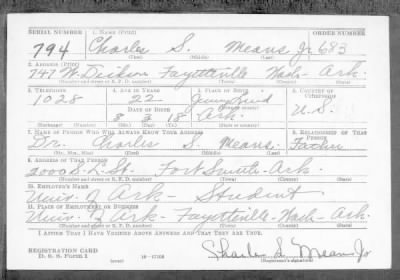 SERIAL NUMBER 1. NAME (Print) ORDER NUMBER
794 Charles S. Means Jr 683
(First) (Middle) (Last)
2. ADDRESS (Print)
747 W. Dickson Fayetteville Wash - Ark.
(Number and street or R. F. D. number) (Town) (County) (State)
3. TELEPHONE 4. AGE IN YEARS 5. PLACE OF BIRTH 6. COUNTRY OF CITIZENSHIP
1028 22 U. S.
DATE OF BIRTH (Town or county)
8 3 18 Ark.
(Exchange) (Number) (Mo.) (Day) (Yr.) (State or country)
7. NAME OF PERSON WHO WILL ALWAYS KNOW YOUR ADDRESS 8. RELATIONSHIP OF THAT PERSON
Dr. Charles S. Means Father
(Mr., Mrs., Miss) (First) (Middle) (Last)
9. ADDRESS OF THAT PERSON
2000 S. L. St. Fort Smith - Ark.
(Number and street or R. F. D. number) (Town) (County) (State)
10. EMPLOYER'S NAME
Univ. of Ark - Student
11. PLACE OF EMPLOYMENT OR BUSINESS
Univ. of Ark - Fayetteville - Wash - Ark.
(Number and street or R. F. D. number) (Town) (County) (State)
I AFFIRM THAT I HAVE VERIFIED ABOVE ANSWERS AND THAT THEY ARE TRUE.
REGISTRATION CARD
D. S. S. Form 1 (over) 16-17105 Charles S. Means Jr
(Registrant's signature)